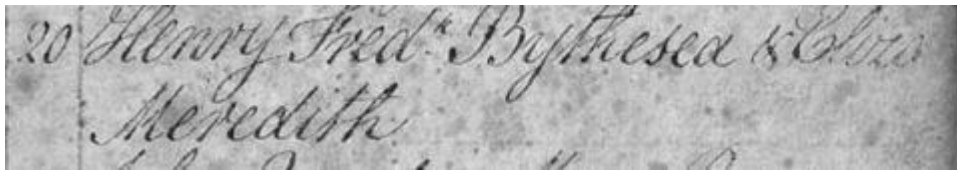 20 Henry Fredk. Bythesea & Eliza
Meredith